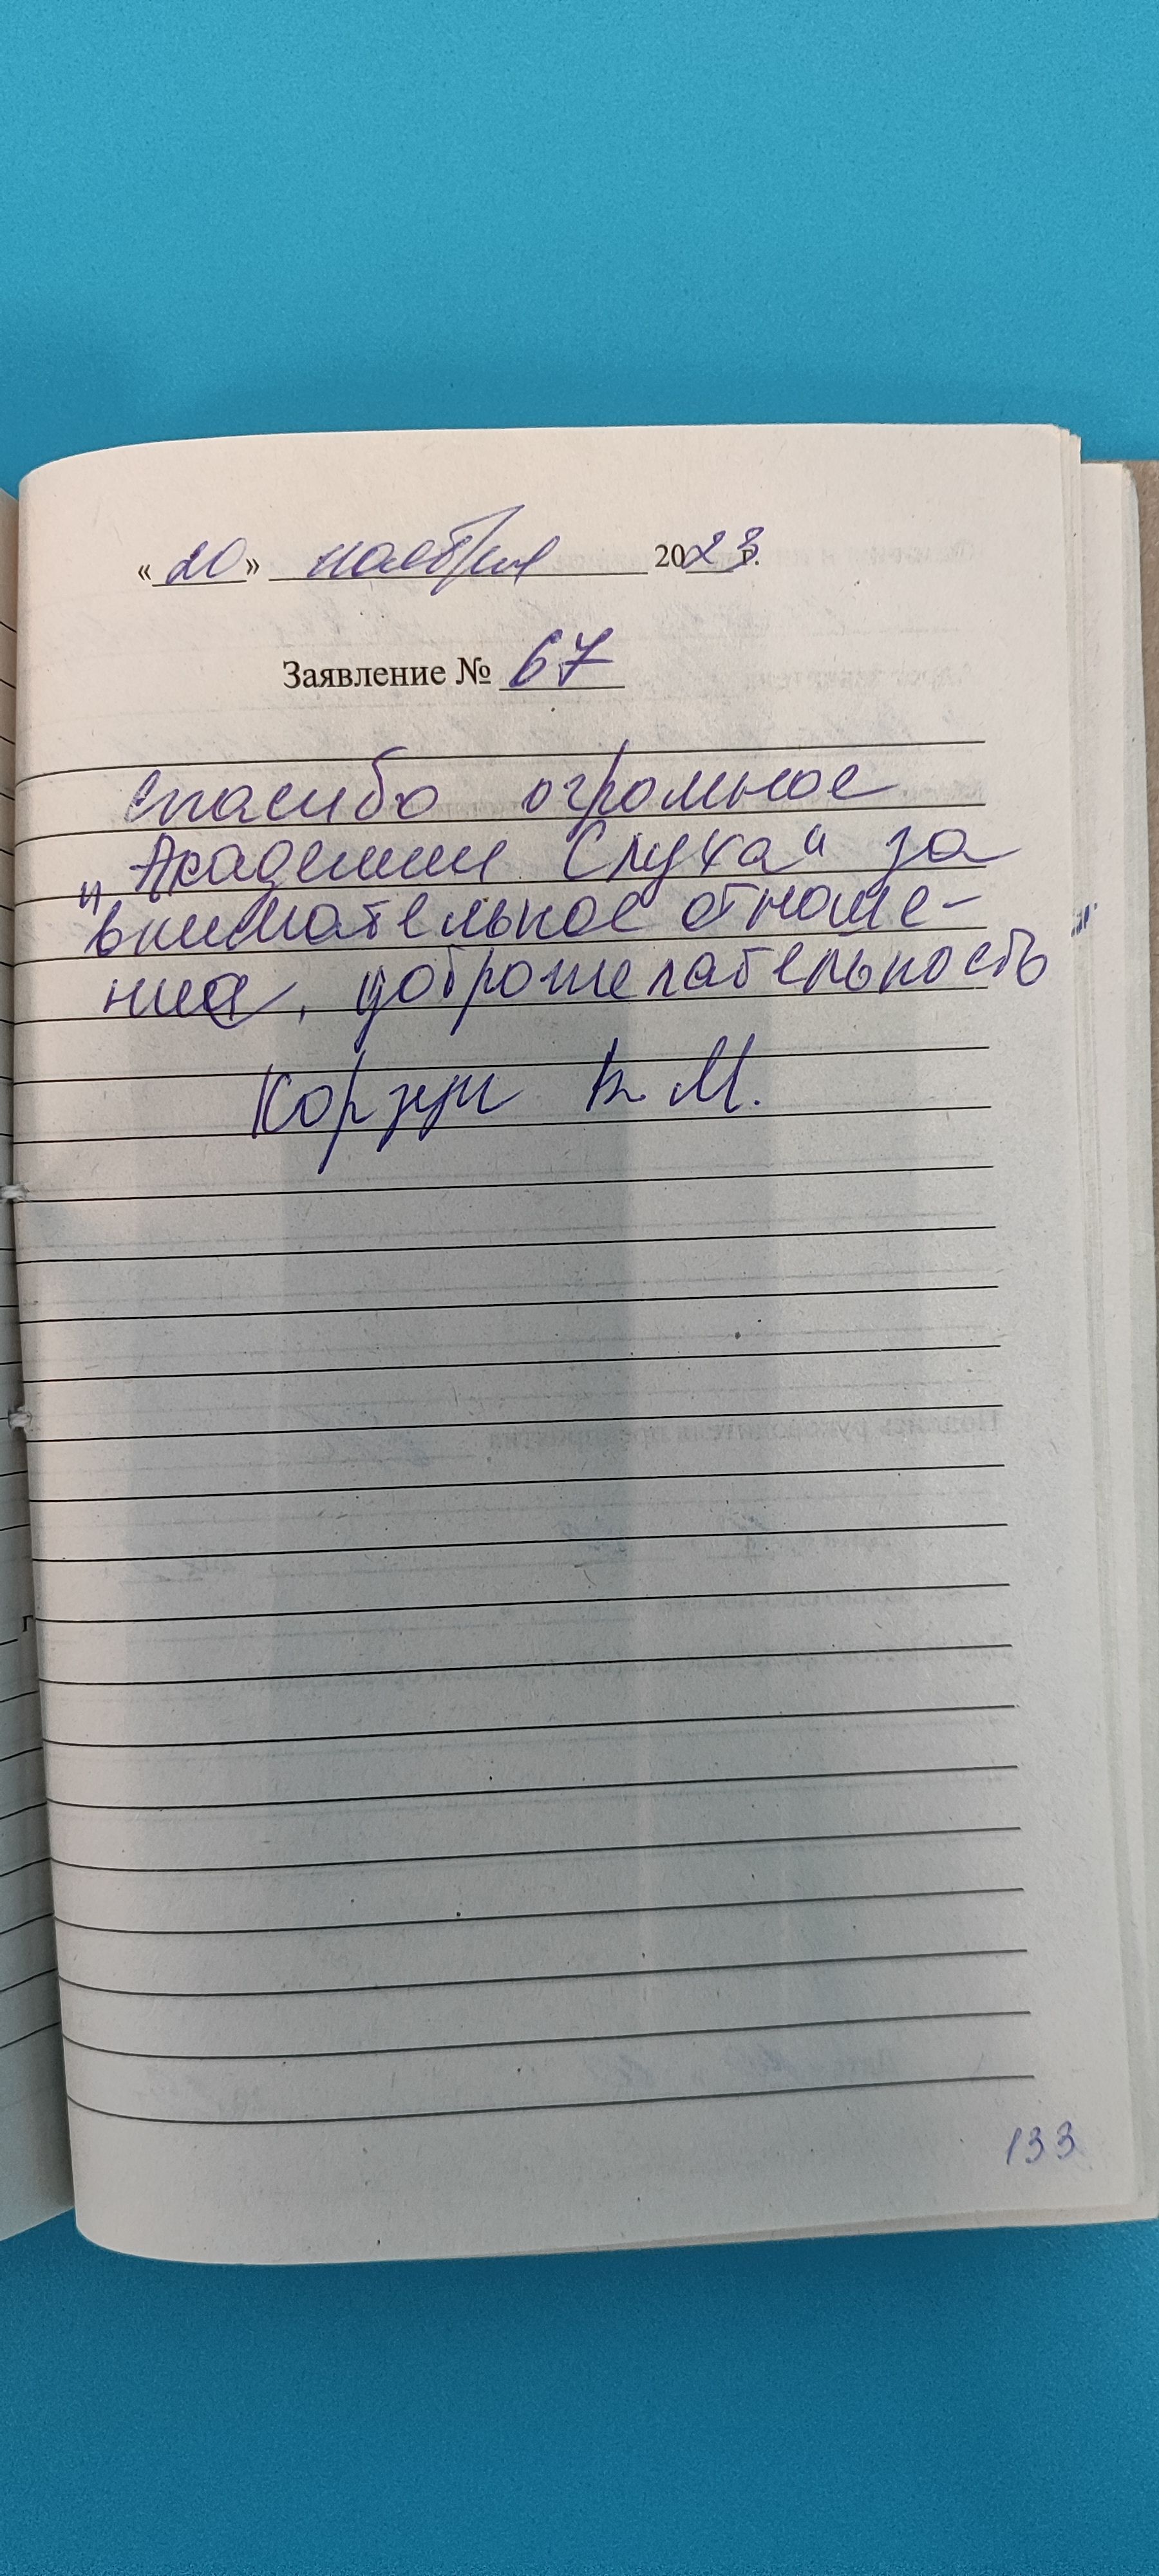 « 20 » ноября 2023 г.
Заявление № 67
Спасибо огромное
„Академии Слуха“ за
внимательное отноше-
ние, доброжелательность
Корзун В. М.
133